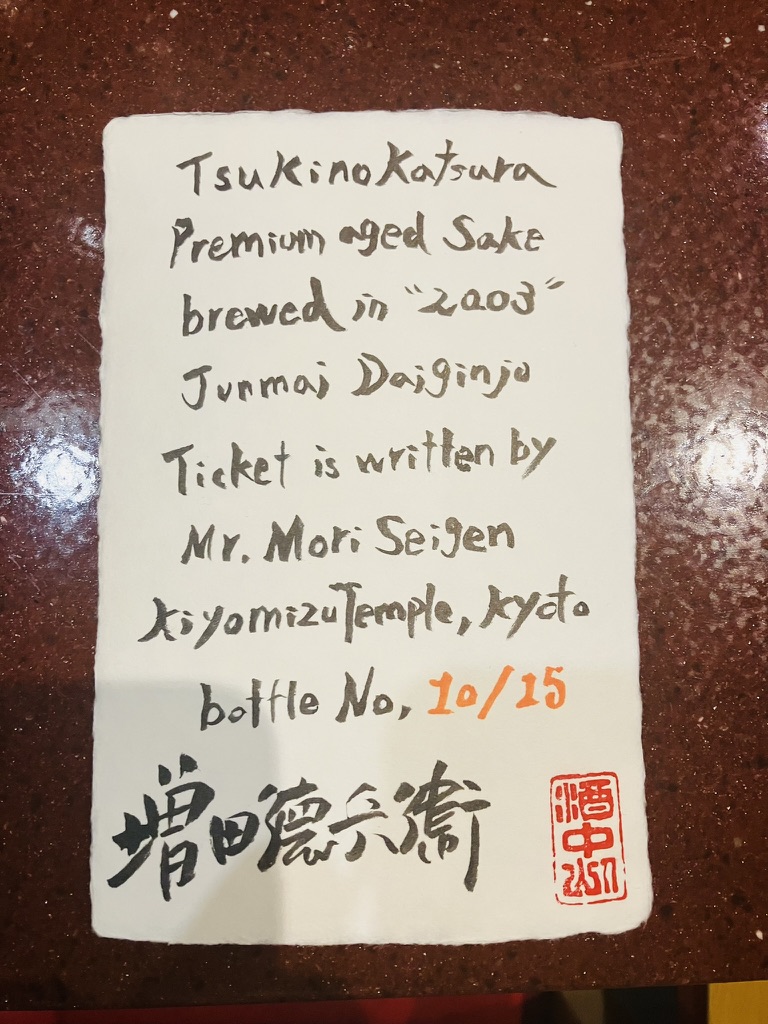 Tsukino Katsura
Premium aged Sake
brewed in "2003"
Junmai Daiginjo
Ticket is written by
Mr. Mori Seigen
Kiyomizu Temple, Kyoto
bottle No, 10/15
増田德兵衞
酒中